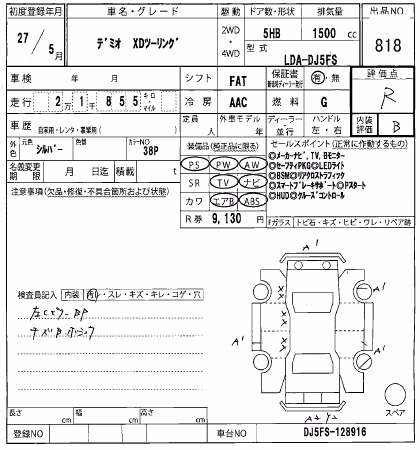 初度登録年月 車名・グレード 駆動 ドア数・形状 排気量 出品NO
27/5月 デミオ XDツーリング 2WD・4WD 5HB 1500cc 818
型式 LDA-DJ5FS
車検 年 月 シフト FAT 保証書 有・無 評価点 R
走行 2万1千855 キロ・マイル 冷房 AAC 燃料 G 内装評価 B
車歴 自家用・レンタ・事業用( ) 定員 人 外車モデル 年 ディーラー・並行 ハンドル 左・右
外色 元色 シルバー 色替 カラーNO 38P
名義変更期限 月 日迄 積載 t
注意事項(欠品・修復・不具合箇所および状態)
装備品(純正品に限る)
PS PW AW
SR TV ナビ
カワ エアB ABS
R券 9,130 円
セールスポイント(正常に作動するもの)
◎メーカーナビ,TV,Bモニター
◎セーフティPKG◎LEDライト
◎BSM◎リアクロストラフィック
◎スマートブレーキサポート◎Pスタート
◎HUD◎クルーズコントロール
Fガラス トビ石・キズ・ヒビ・ワレ・リペア跡
検査員記入 内装 ・スレ・キズ・キレ・コゲ・穴
A' A' A' A' A'
スペア
長さ cm 幅 cm 高さ cm
登録NO 車台NO DJ5FS-128916